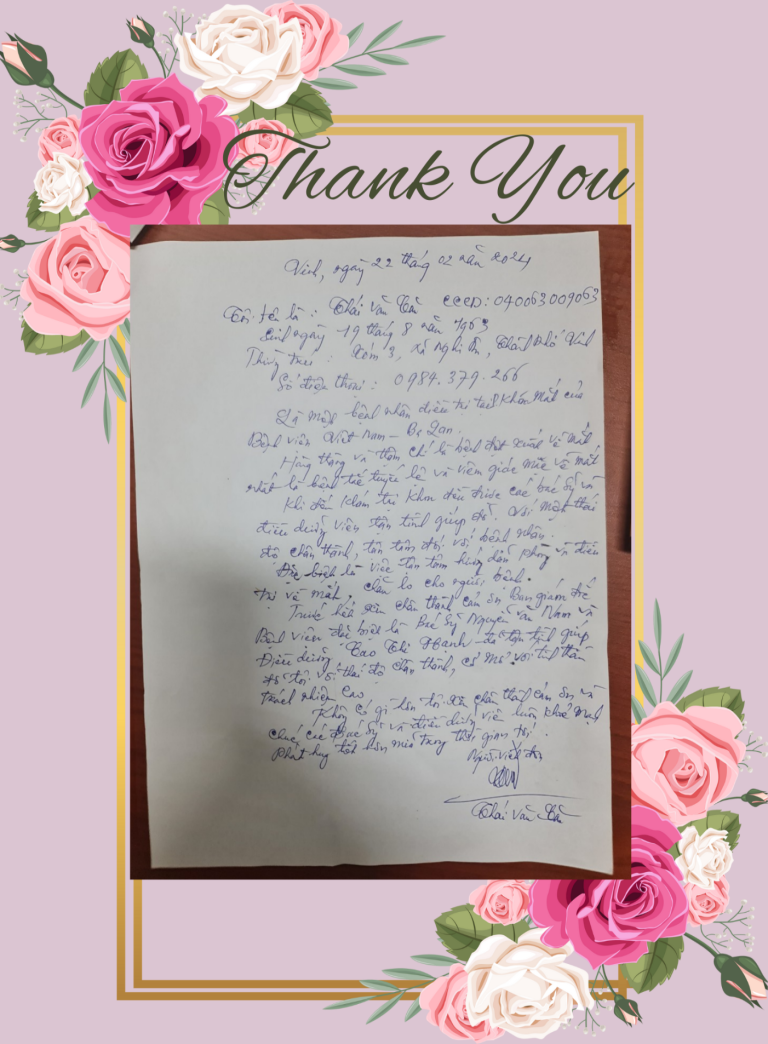 Thank You
Vinh, ngày 22 tháng 02 năm 2024
Tôi tên là: Thái Văn CCCD: 040063009063
Sinh ngày 19 tháng 8 năm 1963
Thường trú: Xóm 3, xã Nghi Ân, Thành Phố Vinh
Số điện thoại: 0984.379.266
Là một bệnh nhân điều trị tại Khoa Mắt của
Bệnh viện Việt Nam - Ba Lan.
và thậm chí là bệnh về mắt,
nhất là bệnh và viêm giác mạc về mắt
Khi đến Khám tại Khoa được các bác sỹ và
điều dưỡng viên tận tình giúp đỡ. Với một thái
độ chân thành, tận tâm đối với bệnh nhân.
Đặc biệt là việc tận tâm hướng dẫn phòng và điều
trị về mắt, chăm lo cho người bệnh.
Trước hết xin chân thành cảm ơn Ban giám đốc
Bệnh viện đặc biệt là Bác Sỹ Nguyễn Nam và
Điều dưỡng Cao Thị Hạnh đã tận tình giúp
đỡ tôi với thái độ chân thành, cởi mở với tinh thần
trách nhiệm cao
Không có gì hơn tôi xin chân thành cảm ơn và
chúc các Bác Sỹ và điều dưỡng viên luôn khoẻ mạnh
Phát huy tốt hơn nữa trong thời gian tới.
Người viết đơn
Thái Văn